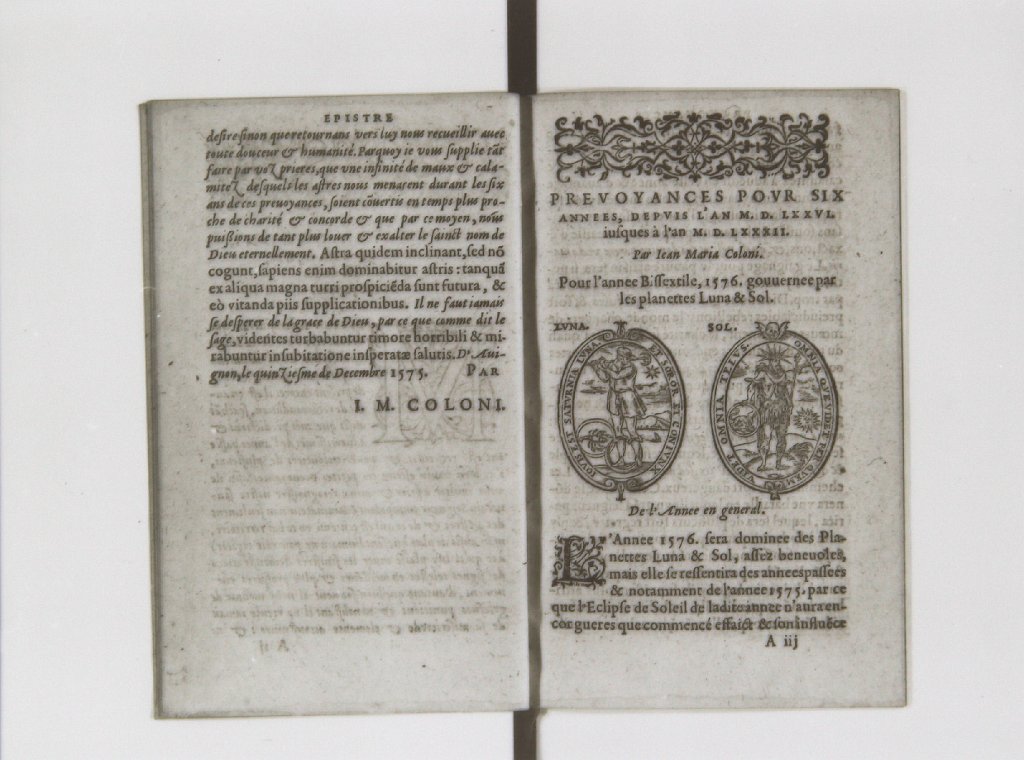 EPISTRE
desire sinon que retournans vers luy nous recueillir auec
toute douceur & humanité. Parquoy ie vous supplie tāt
faire par voz prieres, que vne infinité de maux & cala-
mitez desquels les astres nous menasent durant les six
ans de ces preuoyances, soient cōuertis en temps plus pro-
che de charité & concorde & que par ce moyen, noꝰ
puissions de tant plus louer & exalter le sainct nom de
Dieu eternellement. Astra quidem inclinant, sed nō
cogunt, sapiens enim dominabitur astris: tanquā
ex aliqua magna turri prospiciēda sunt futura, &
eò vitanda piis supplicationibus. Il ne faut iamais
se desperer de la grace de Dieu, par ce que comme dit le
sage, videntes turbabuntur timore horribili & mi-
rabuntur in subitatione insperatæ salutis. D'Aui-
gnon, le quinziesme de Decembre 1575. PAR
I. M. COLONI.
PREVOYANCES POVR SIX
ANNEES, DEPVIS L'AN M. D. LXXVI.
iusques à l'an M. D. LXXXII.
Par Iean Maria Coloni.
Pour l'annee Bissextile, 1576. gouuernee par
les planettes Luna & Sol.
LVNA. SOL.
De l'Annee en general.
L'Annee 1576. sera dominee des Pla-
nettes Luna & Sol, assez beneuoles,
mais elle se ressentira des annees passees
& notamment de l'annee 1575. par ce
que l'Eclipse de Soleil de ladite annee n'aura en-
cor gueres que commencé essaict & son influēce
A iij